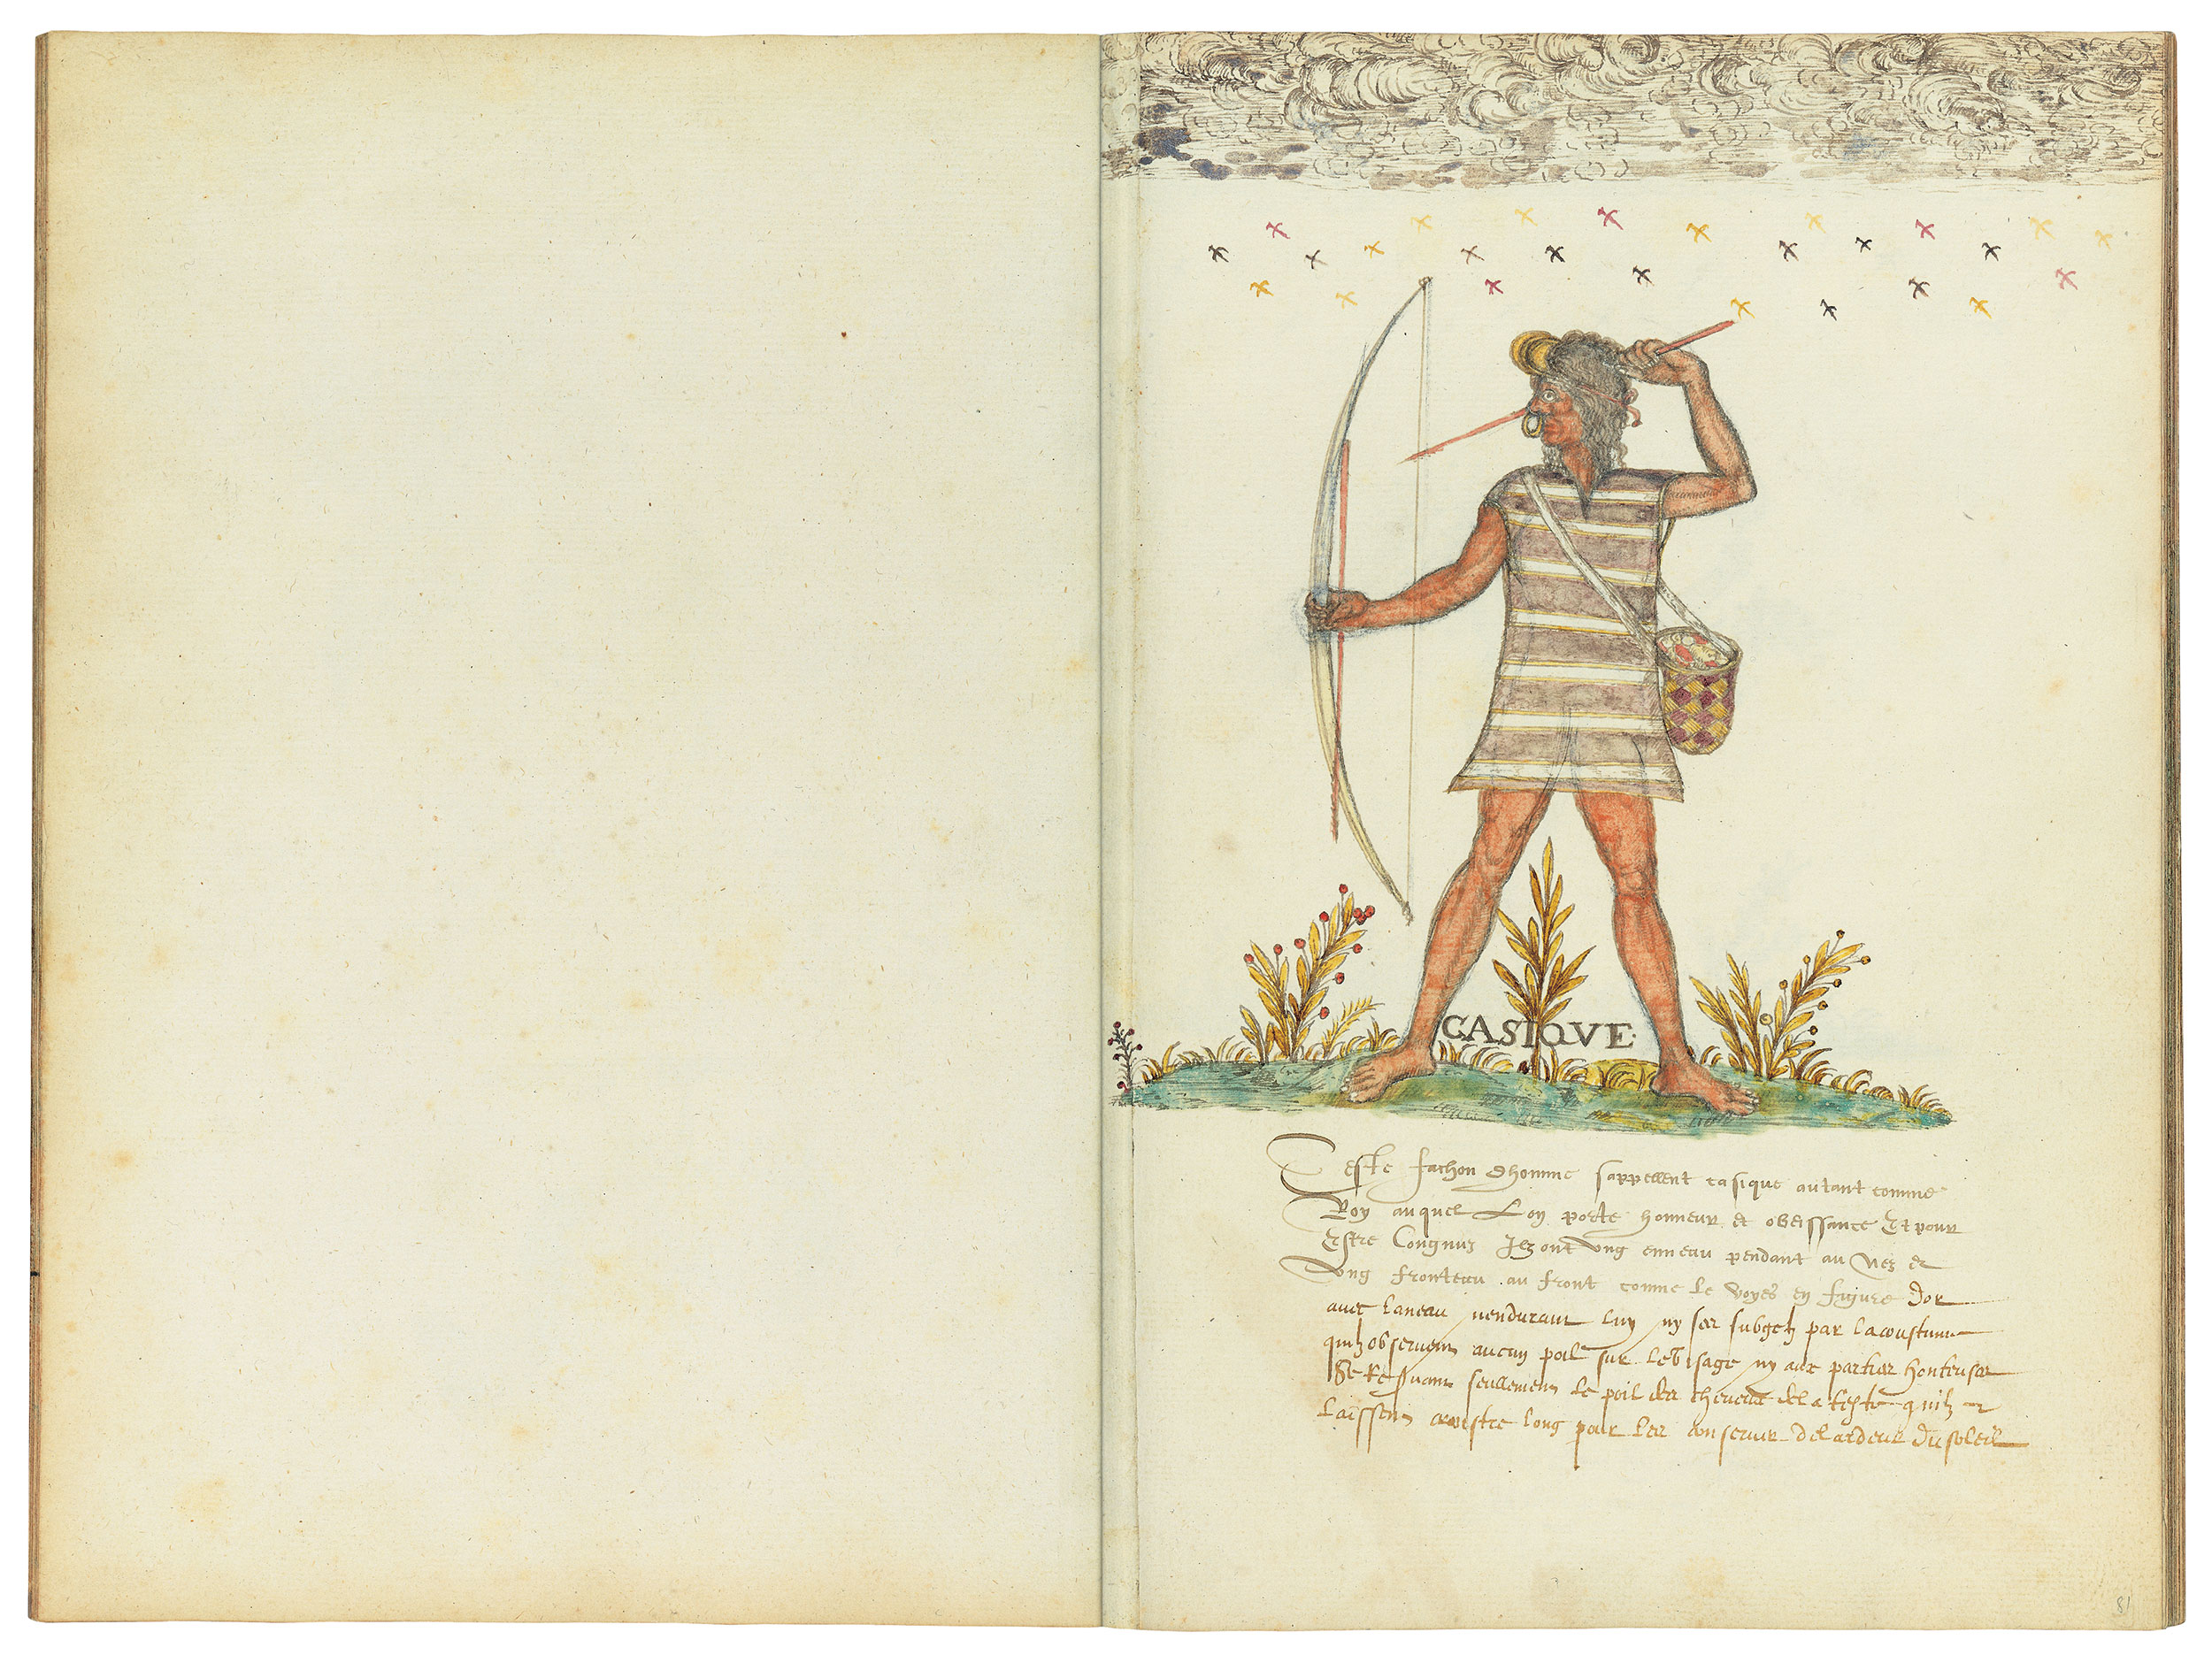 CASIQVE
Ceste fachon dhomme sappellent casique autant comme
Roy auquel Lon porte honneur et obeissance Et pour
Estre Congnus Ilz ont ung enneau pendant au Nez et
ung fronteau au front comme le voyes en figure dor
avec laneau nendurant luy ny ses subgetz par la coustume
quilz observent aucun poil sur le visage ny aux parties honteuses
Se Reservant seullement le poil des cheveux de la teste quilz
Laissent croistre long pour les conserver de lardeur du soleil
81